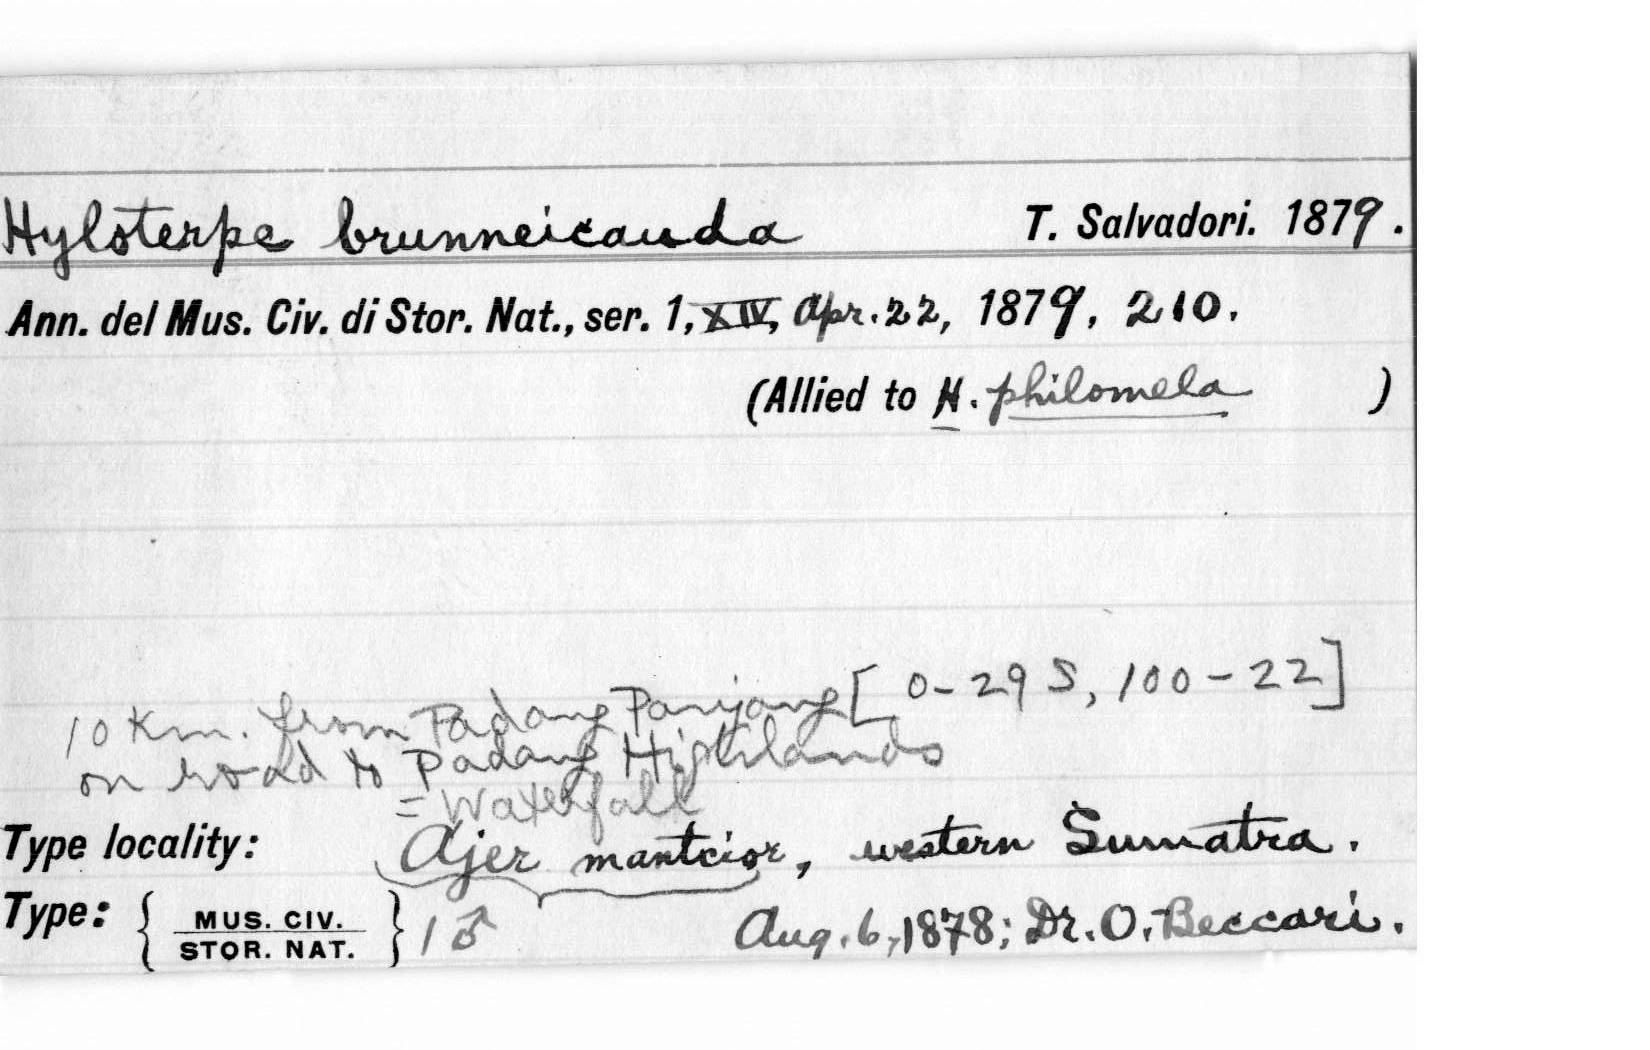 Hyloterpe brunneicauda T. Salvadori. 1879.
Ann. del Mus. Civ. di Stor. Nat., ser. 1, XIV, Apr. 22, 1879, 210.
(Allied to H. philomela )
10 Km. from Padang Panjang [0-29 S, 100-22]
on road to Padang Highlands
= Waterfall
Type locality: Ajer mantcior, western Sumatra.
Type: { MUS. CIV. STOR. NAT. } 1 ♂ Aug. 6, 1878; Dr. O. Beccari.